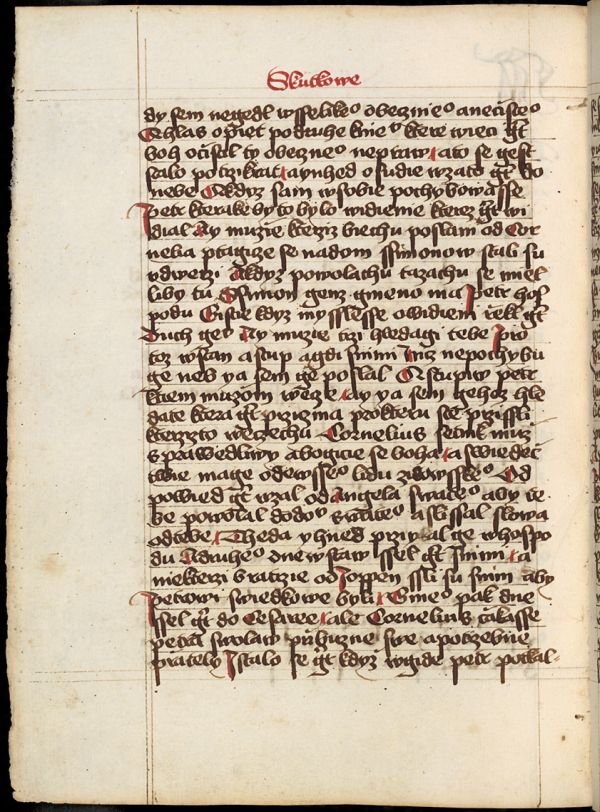 Skutkowe
dy sem negedl wsselikeo obecznieo aneczisteo
Ahlas opiet podruhe knieo ktere wieci gt
boh ocistal ty obeczneo neprawi ato se gest
stalo potrzikrat aynhed osudie wzato gt do
nebe Akdyz sam wsobie pochybowasse
Petr kterakebytobylo widienie kterez gt wi
dial Ay muzie kterziz biechu poslani od Cor
nelia ptagicze se nadom ssimonow stali su
vdwerzi Akdyz powolachu tazachu se miel
liby tu Ssimon genz gmeno ma Petr hos
podu Giste kdyz myslesse owidieni rekl gt
duch gei Ay muzie trzi hledagi tebe Pro
toz wstan astup agdi snimi nicz nepochybu
ge neb ya sem ge poslal Astupiw petr
ktiem muzom wecze ay ya sem gehoz hle
date ktera gt przicina prokteru ste przissli
kterzizto wecechu Cornelius setnik muz
sprawedliwy abogicie se boha aswiedec
twie mage odewsseo lidu zidowskeo Od
powied gt wzal odangela swateo aby te
be powolal dodou swateo aslissal slowa
odtebe Theda yhned prziwal ge whospo
du Adruheo dne wstaw ssel gt snimi a
niekterzi bratrzie od Joppen ssli su snim aby
Petrowi swiedkowe byli Gineo pak dne
ssel gt do Cesaree ale Cornelius cakasse
petra swolaw przibuzne swe apotrzebne
prately Istalo se gt kdyz wgide petr potkal-